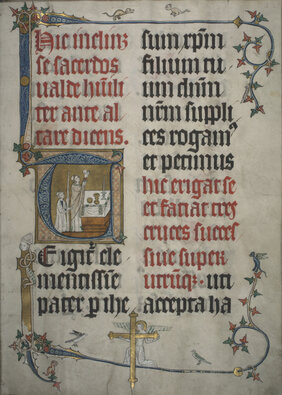 Hic inclinꝫ
se sacerdos
ualde humili
ter ante al
tare dicens.
Te igit᷑ cle
mentissie
pater p ihe
sum xpm
filium tu
um dnm
nrm suppli
ces rogamꝰ
et petimus
hic erigat se
et faciat tres
cruces succes
siue super
utrunqꝫ. uti
accepta ha